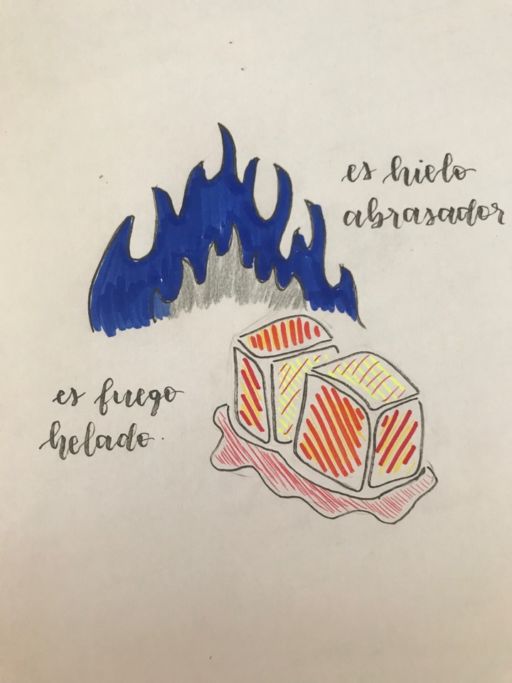 es hielo
abrasador
es fuego
helado.